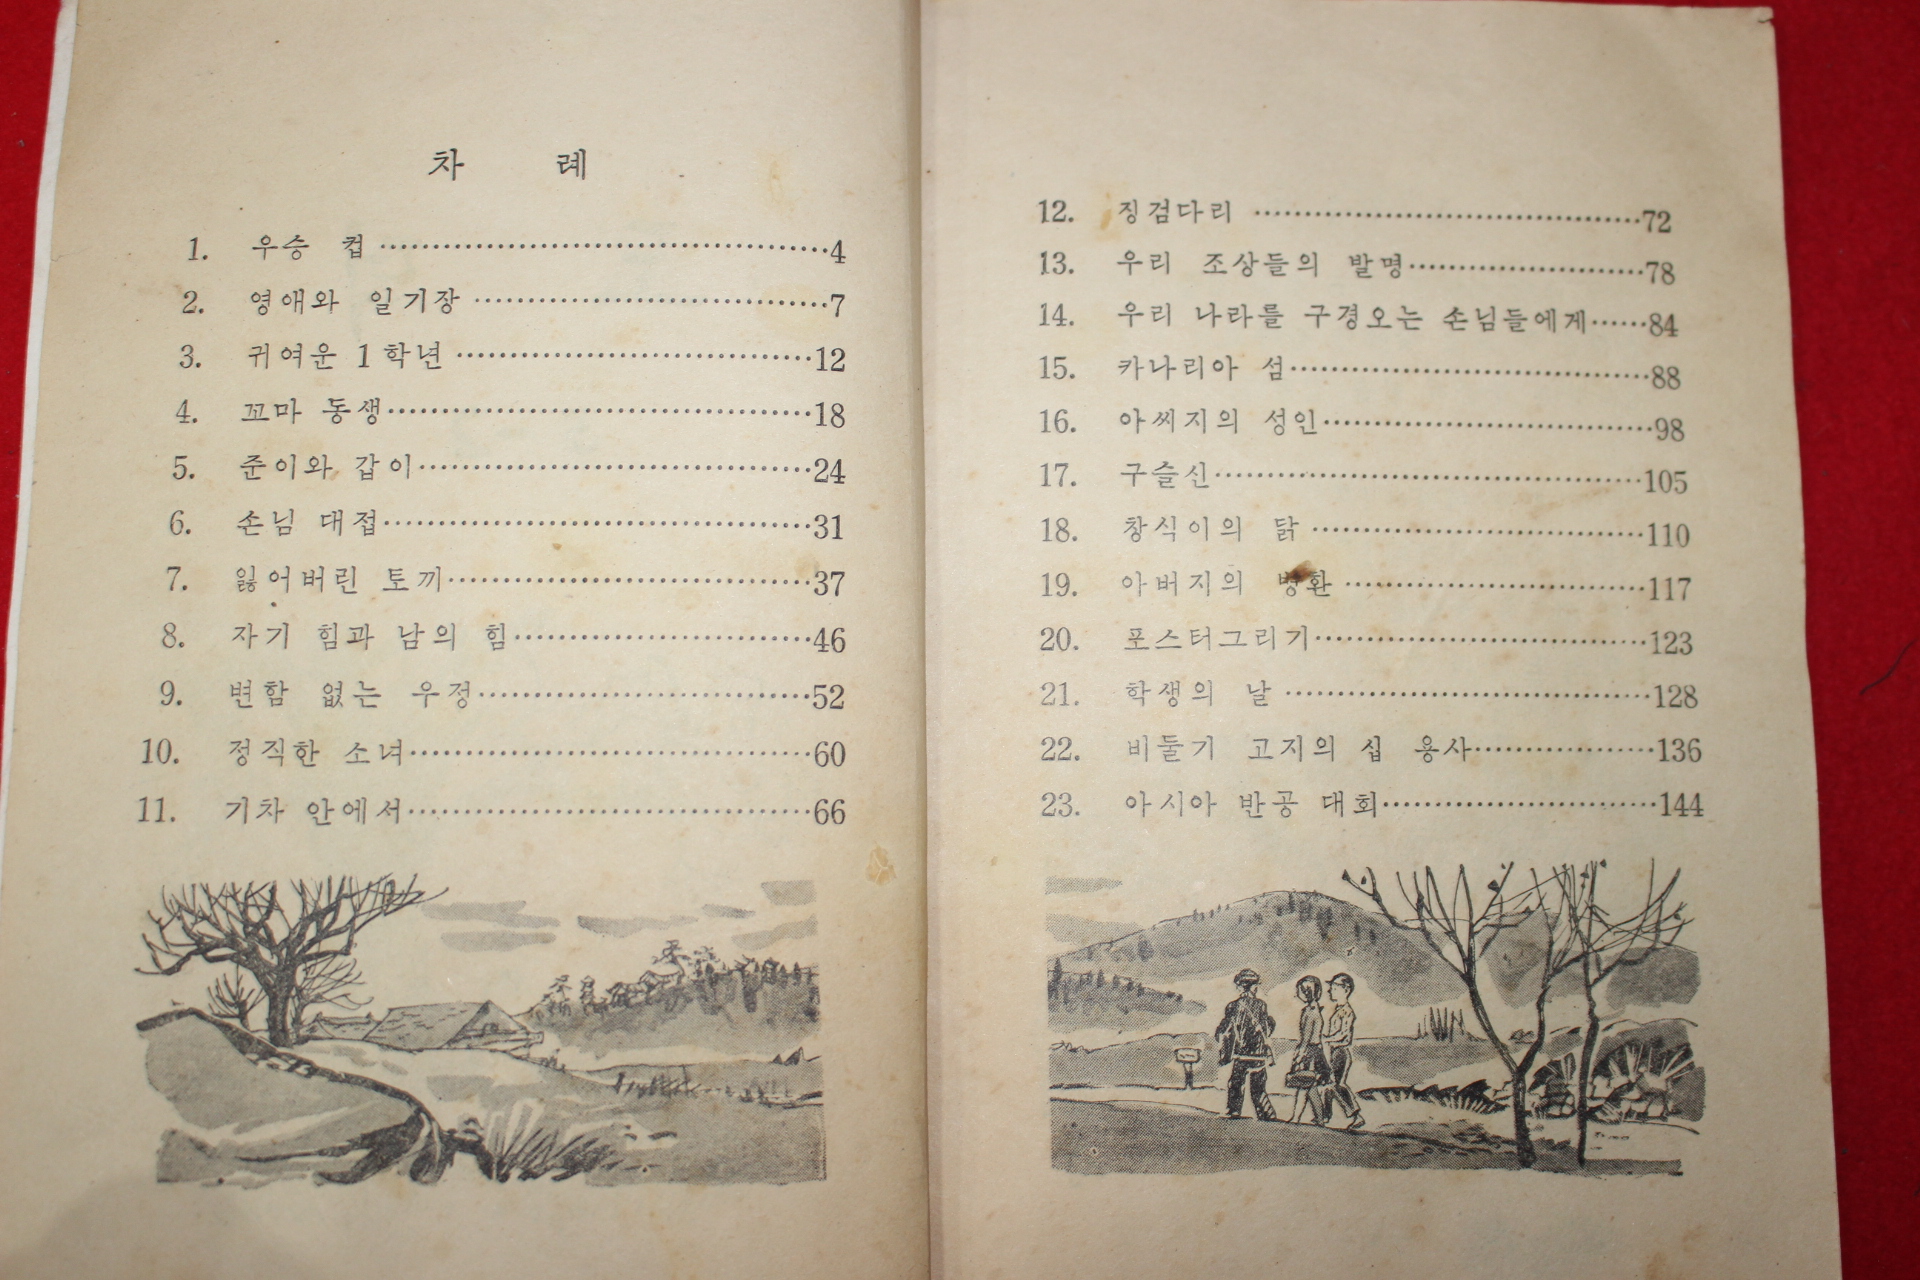 차 례
1. 우승 컵 ········ 4
2. 영애와 일기장 ········ 7
3. 귀여운 1학년 ········ 12
4. 꼬마 동생 ········ 18
5. 준이와 갑이 ········ 24
6. 손님 대접 ········ 31
7. 잃어버린 토끼 ········ 37
8. 자기 힘과 남의 힘 ········ 46
9. 변함 없는 우정 ········ 52
10. 정직한 소녀 ········ 60
11. 기차 안에서 ········ 66
12. 징검다리 ········ 72
13. 우리 조상들의 발명 ········ 78
14. 우리 나라를 구경오는 손님들에게 ······ 84
15. 카나리아 섬 ········ 88
16. 아씨지의 성인 ········ 98
17. 구슬신 ········ 105
18. 창식이의 닭 ········ 110
19. 아버지의 병환 ········ 117
20. 포스터그리기 ········ 123
21. 학생의 날 ········ 128
22. 비둘기 고지의 십 용사 ········ 136
23. 아시아 반공 대회 ········ 144